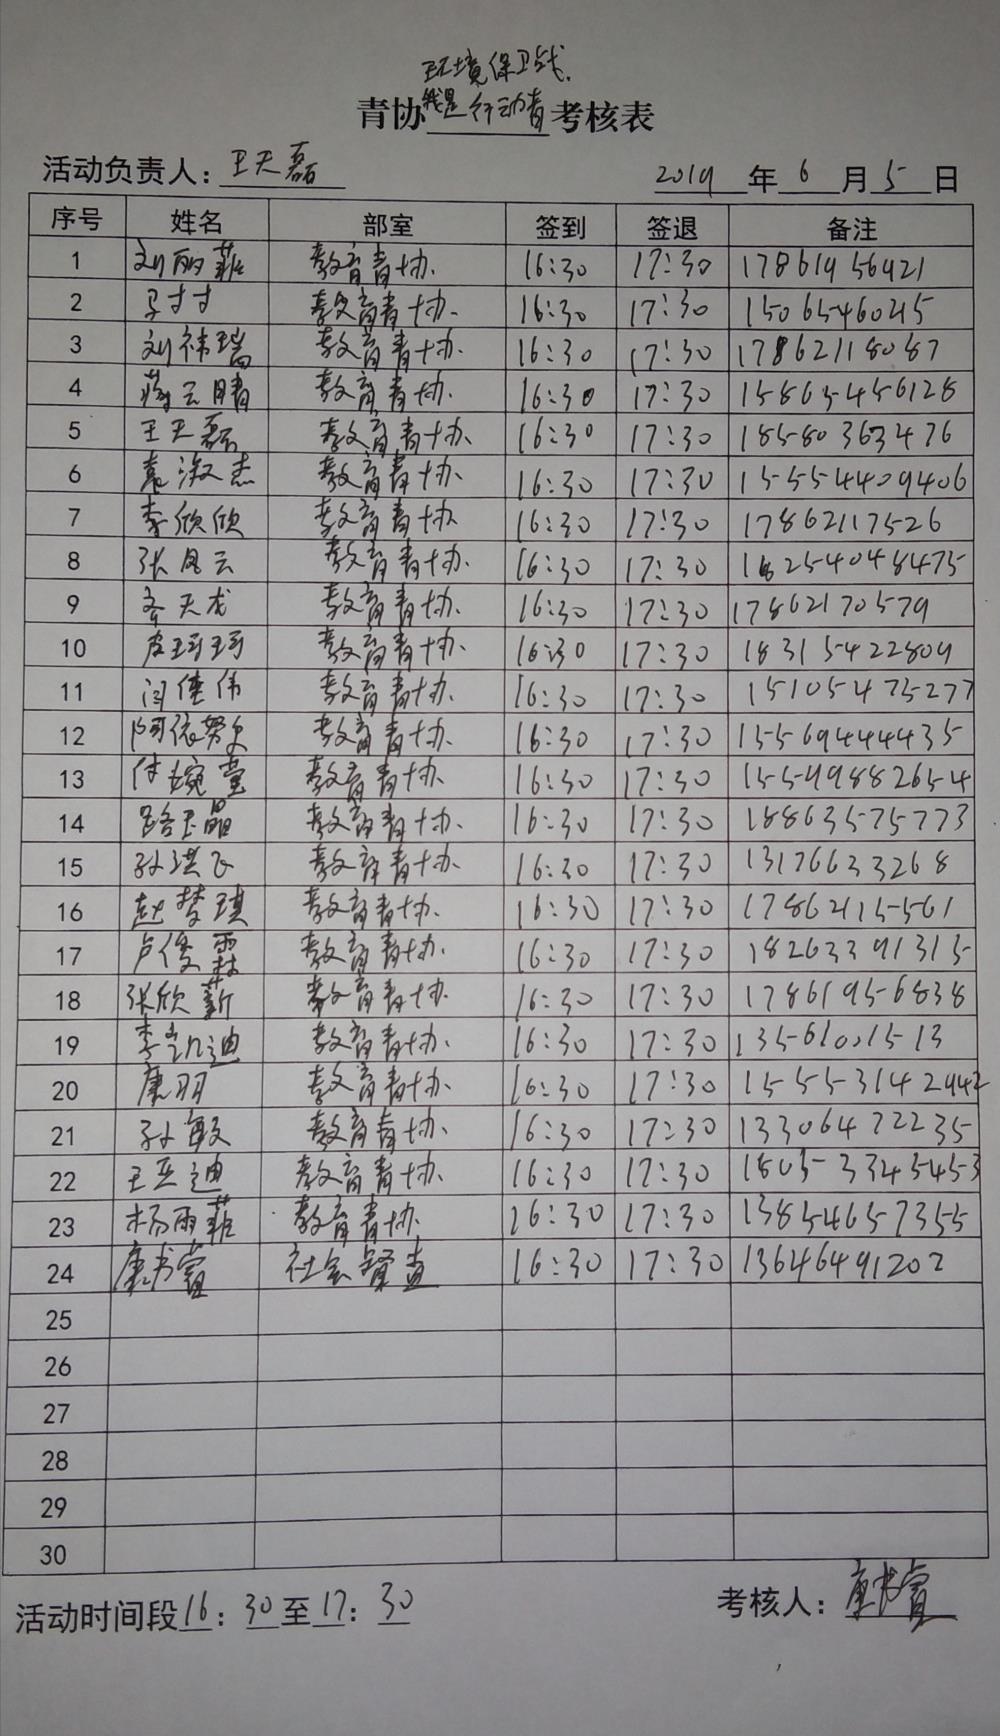 环境保卫战.
青协我是行动青考核表
活动负责人: 王天磊 2019年6月5日
序号 姓名 部室 签到 签退 备注
1 刘丽菲 教育青协. 16:30 17:30 17861956421
2 子寸寸 教育青协. 16:30 17:30 15065460215
3 刘祎瑞 教育青协. 16:30 17:30 17862118087
4 蒋云晴 教育青协. 16:30 17:30 15863456128
5 王天磊 教育青协. 16:30 17:30 18580363476
6 袁淑杰 教育青协. 16:30 17:30 15554409406
7 李欣欣 教育青协 16:30 17:30 17862117526
8 张凤云 教育青协. 16:30 17:30 18254048475
9 齐天龙 教育青协. 16:30 17:30 17862170579
10 皮珂珂 教育青协. 16:30 17:30 18315422809
11 闫佳伟 教育青协. 16:30 17:30 15105475277
12 阿依努尔 教育青协. 16:30 17:30 15569444435
13 付婉莹 教育青协. 16:30 17:30 15549882654
14 路玉晶 教育青协. 16:30 17:30 18863575773
15 孙洪飞 教育青协. 16:30 17:30 13176633268
16 赵梦琪 教育青协. 16:30 17:30 17862115561
17 卢俊霖 教育青协. 16:30 17:30 18263391315
18 张欣薪 教育青协. 16:30 17:30 17861956838
19 李凯迪 教育青协. 16:30 17:30 13561001513
20 康羽 教育青协. 16:30 17:30 15553142942
21 孙敏 教育青协. 16:30 17:30 13306472235
22 王亚迪 教育青协. 16:30 17:30 18053345453
23 杨雨菲 教育青协. 16:30 17:30 13854657355
24 康书睿 社会督查 16:30 17:30 13646491202
25
26
27
28
29
30
活动时间段16:30至17:30 考核人: 康书睿